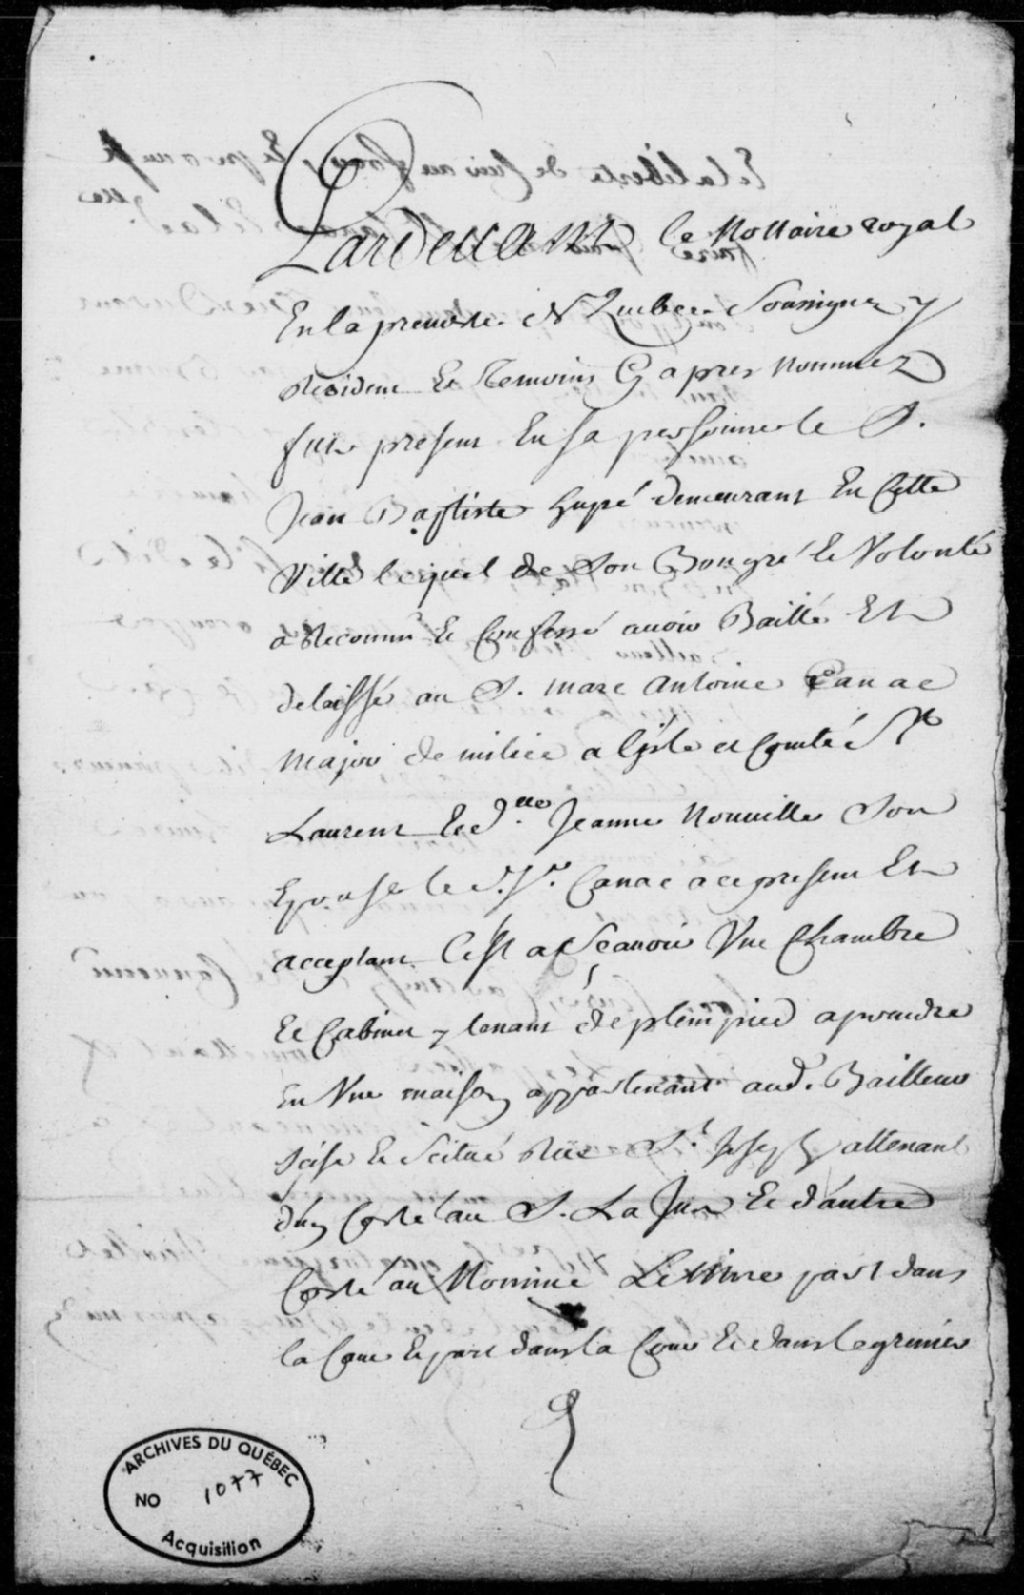 Pardevant le Nottaire royal
En la prevosté de Quebec Soussigné y
Resident Et Temoins Cy apres Nommez
fut present En sa personne le S.
Jean Baptiste hupé demeurant En Cette
Ville lequel de Son Bon gré Et Volonté
a Reconnu Et Confessé avoir Baillé Et
delaissé au S. marc antoine Canac
major de milice a l'isle et Comté St
Laurent Et d.elle Jeanne Nouville Son
Epouse le d. Sr. Canac a ce present Et
acceptant C'est a Scavoir Une Chambre
Et Cabinet y tenant de plein pied a prendre
En Une maison appartenant aud. Bailleur
Scise Et Scitué Rüe St. Joseph attenant
d'un Costé au S. La Et d'autre
Costé au Nommé part dans
la Cour Et part dans la Cour Et dans le grenier
ARCHIVES DU QUÉBEC
NO 1077
Acquisition